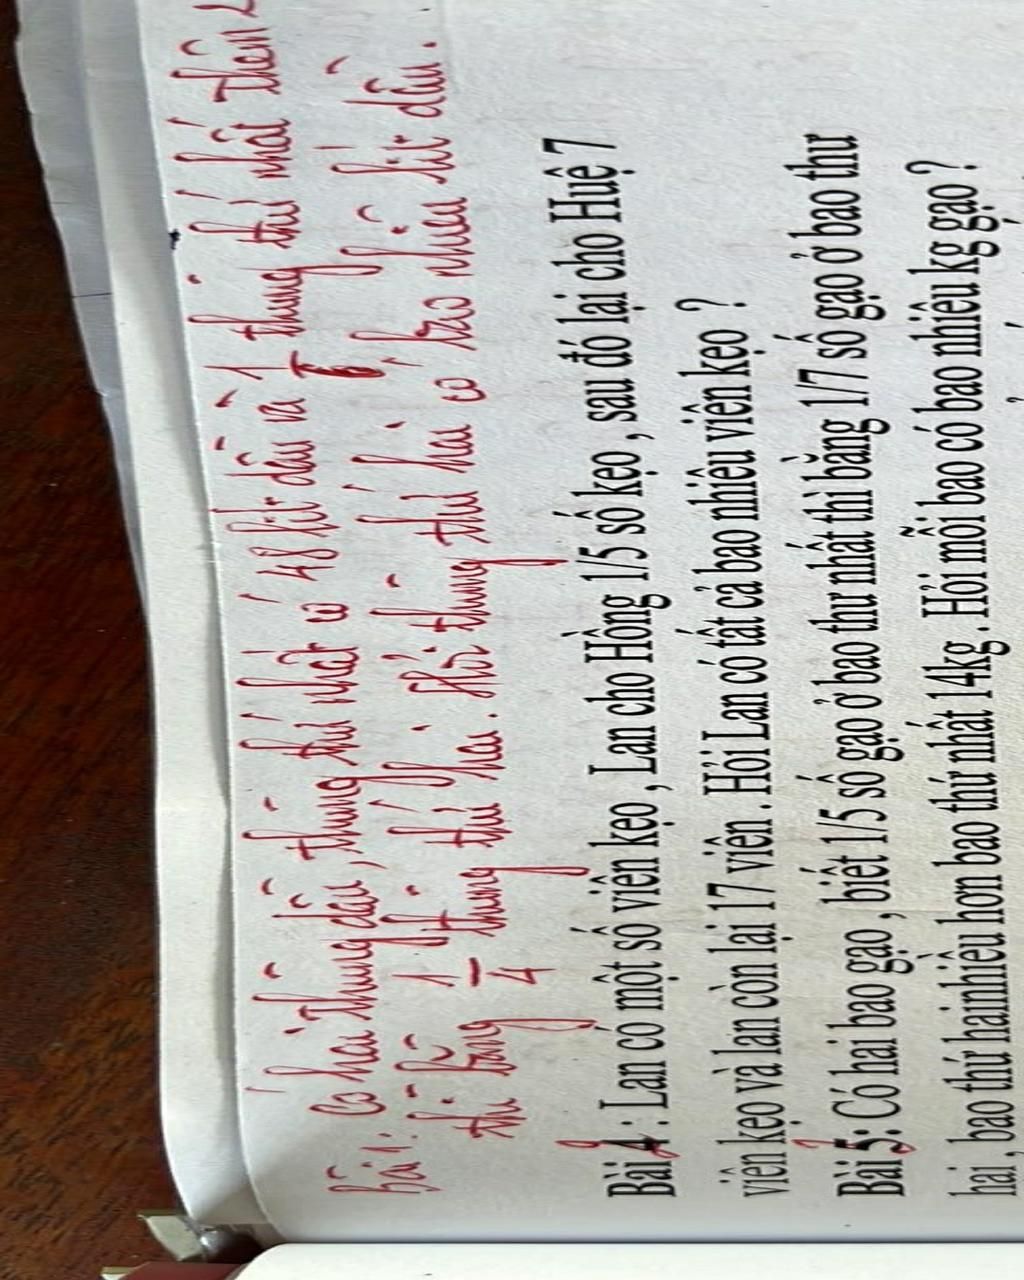 Bài 1: Có hai thùng dầu, thùng thứ nhất có 48 lít dầu và 1/6 thùng thứ nhất thêm 2
thì bằng 1/4 thùng thứ hai. Hỏi thùng thứ hai có bao nhiêu lít dầu.
Bài 2: Lan có một số viên kẹo , Lan cho Hồng 1/5 số kẹo , sau đó lại cho Huệ 7
viên kẹo và lan còn lại 17 viên . Hỏi Lan có tất cả bao nhiêu viên kẹo ?
Bài 3: Có hai bao gạo , biết 1/5 số gạo ở bao thư nhất thì bằng 1/7 số gạo ở bao thư
hai , bao thứ hainhiều hơn bao thứ nhất 14kg . Hỏi mỗi bao có bao nhiêu kg gạo ?